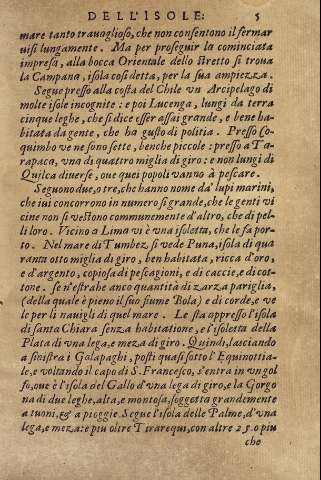 DELL'ISOLE: 5
mare tanto trauaglioso, che non consentono il fermar
uisi lungamente. Ma per proseguir la cominciata
impresa, alla bocca Orientale dello stretto si troua
la Campana, isola cosi detta, per la sua ampiezza.
Segue presso alla costa del Chile vn Arcipelago di
molte isole incognite: e poi Lucenga, lungi da terra
cinque leghe, che si dice esser assai grande, e bene ha-
bitata da gente, che ha gusto di politia. Presso Co-
quimbo ve ne sono sette, benche piccole: presso a Ta-
rapaca, vna di quattro miglia di giro: e non lungi di
Quilca diuerse, oue quei popoli vanno à pescare.
Seguono due, o tre, che hanno nome da' lupi marini,
che iui concorrono in numero si grande, che le genti vi
cine non si vestono communemente d'altro, che di pel-
li loro. Vicino a Lima vi è vna isoletta, che le fa por-
to. Nel mare di Tumbez si vede Puna, isola di qua
ranta otto miglia di giro, ben habitata, ricca d'oro,
e d'argento, copiosa di pescagioni, e di caccie, e di cot-
tone. se n'estrahe anco quantità di zarza pariglia,
(della quale è pieno il suo fiume Bola) e di corde, e ve
le per li nauigli di quel mare. Le sta appresso l'isola
di santa Chiara senza habitatione, e l'isoletta della
Plata di vna lega, e meza di giro. Quindi, lasciando
a sinistra i Galapaghi, posti quasi sotto l'Equinottia-
le, e voltando il capo di S. Francesco, s'entra in vn gol
fo, oue è l'isola del Gallo d'vna lega di giro, e la Gorgo
na di due leghe, alta, e montosa, soggetta grandemente
a tuoni, & a pioggie. Segue l'isola delle Palme, d'vna
lega, e meza: e piu oltre Tirarequi, con altre 25. o piu
che